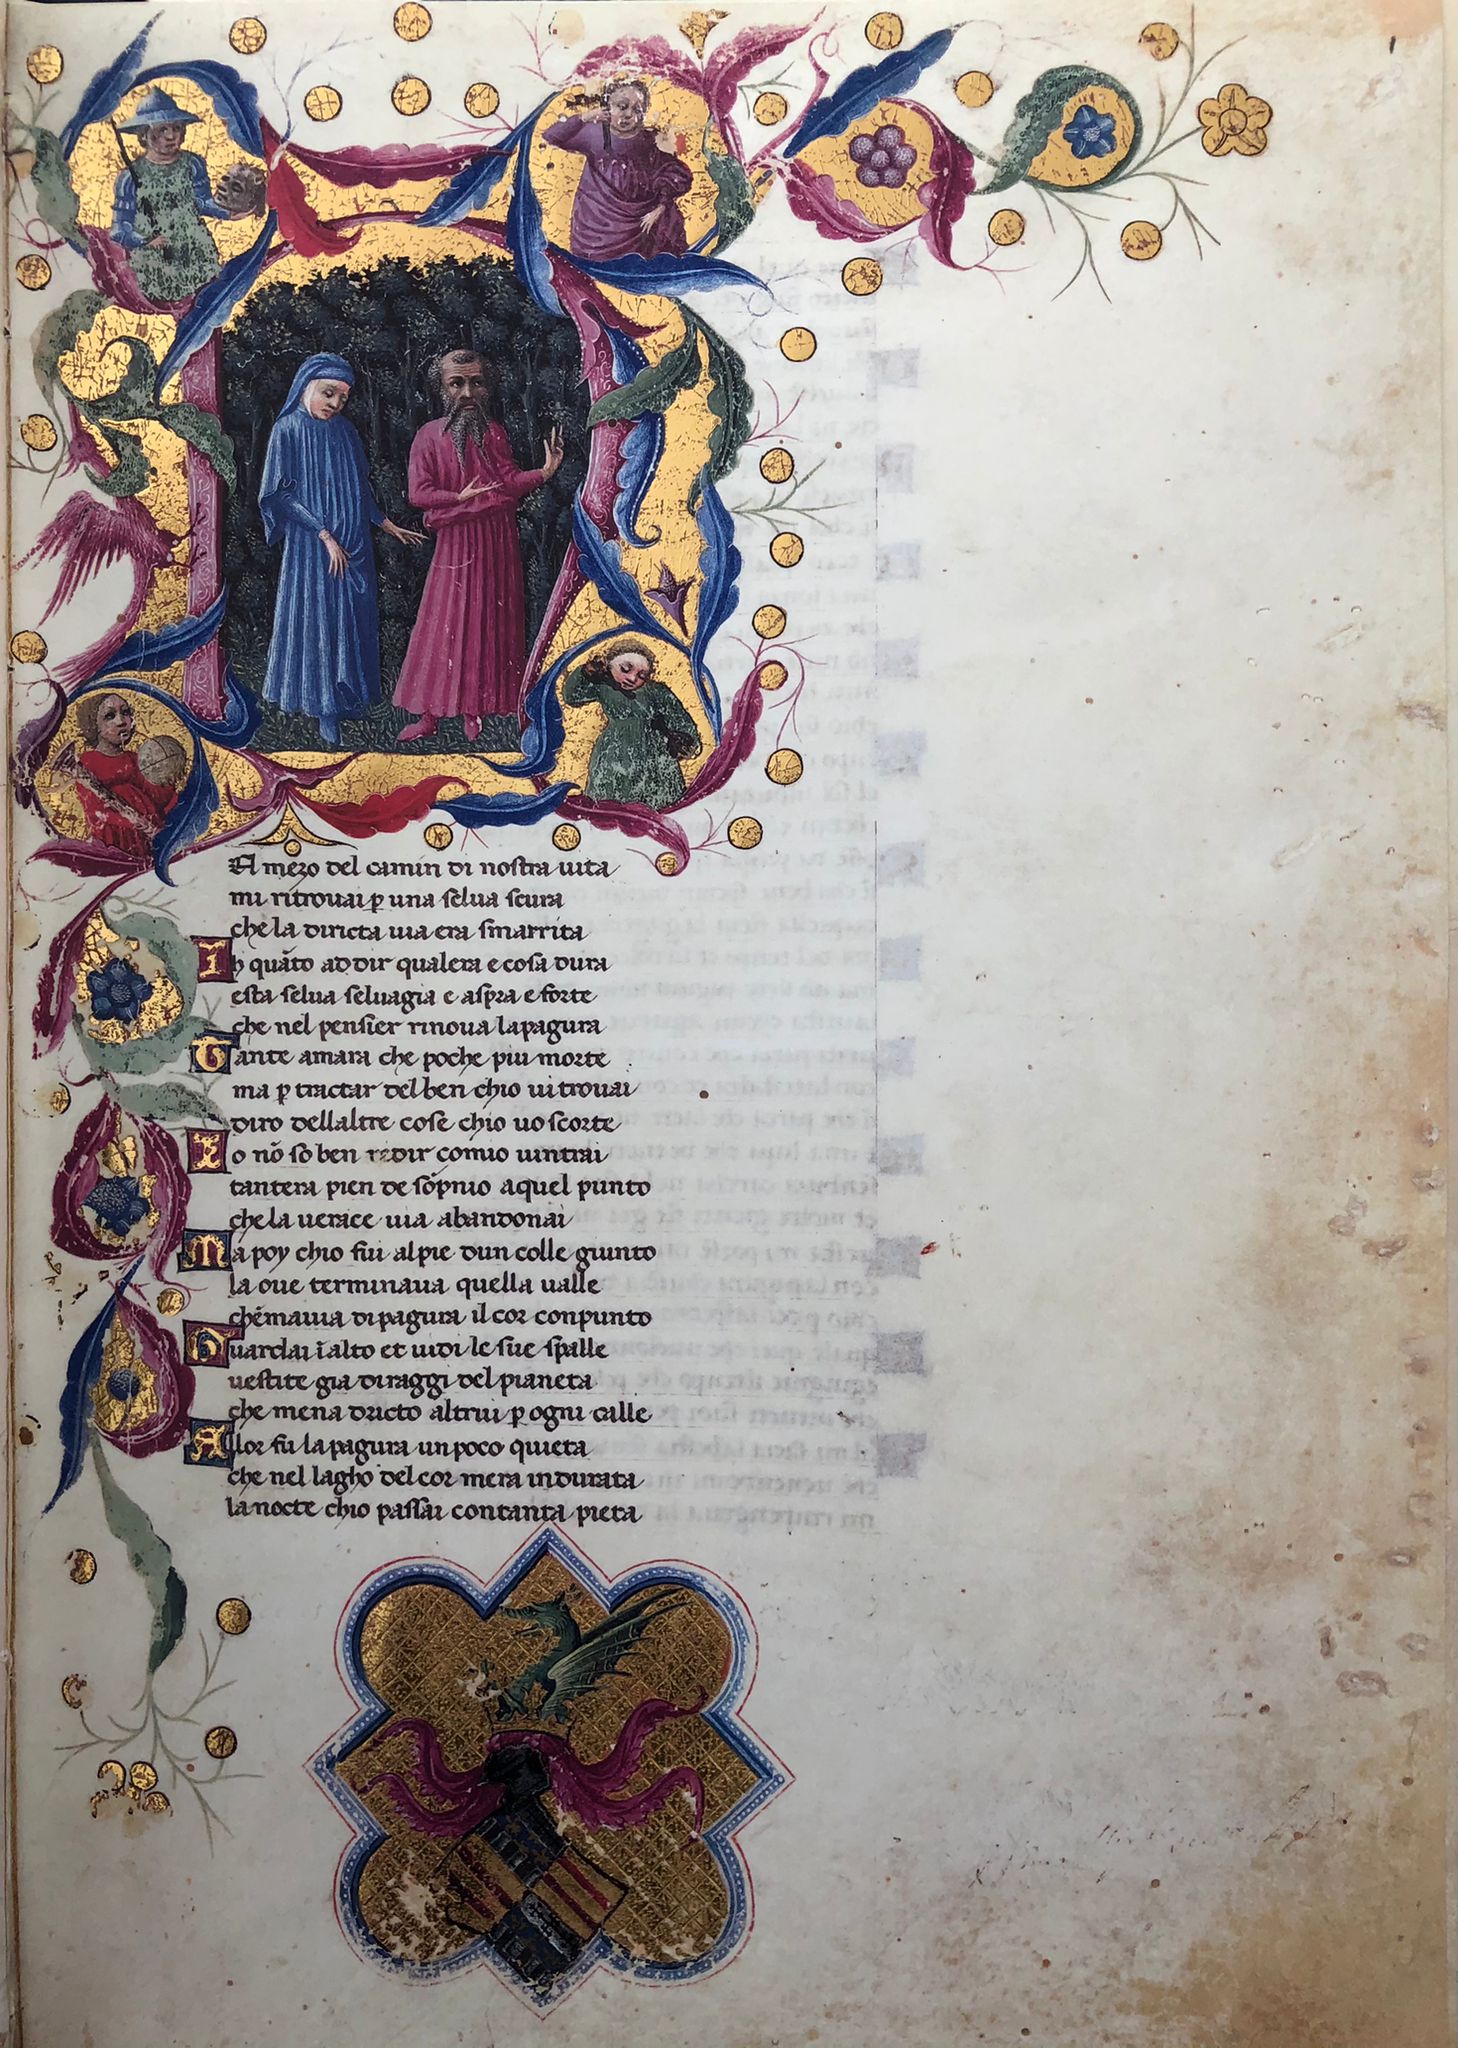 A mezo del camin di nostra uita
mi ritrouai p una selua scura
che la diricta uia era smarrita
Ih quāto ad dir qualera e cosa dura
esta selua seluagia e aspra e forte
che nel pensier rinoua la pagura
Tante amara che poche piu morte
ma p tractar del ben chio ui trouai
diro dell altre cose chio uo scorte
Io nō so ben redir comio uintrai
tantera pien de sōpnio aquel punto
che la uerace uia abandonai
Ma poy chio fui al pie dun colle giunto
la oue terminaua quella ualle
chēmauia di pagura il cor conpunto
Guardai ī alto et uidi le sue spalle
uestite gia di raggi del pianeta
che mena dricto altrui p ogni calle
Allor fu la pagura un poco quieta
che nel lagho del cor mera indurata
la nocte chio passai con tanta pieta